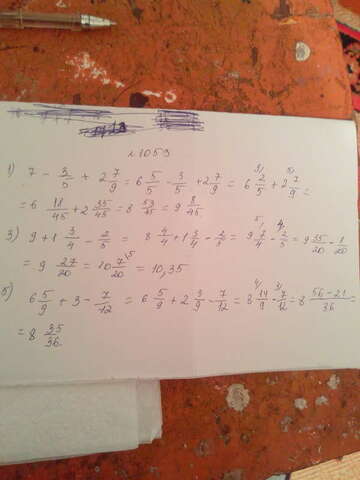 №1059
1) 7 - 3/5 + 2 7/9 = 6 5/5 - 3/5 + 2 7/9 = 6 2/5 + 2 7/9 =
= 6 18/45 + 2 35/45 = 8 53/45 = 9 8/45
3) 9 + 1 3/4 - 2/5 = 8 4/4 + 1 3/4 - 2/5 = 9 7/4 - 2/5 = 9 35/20 - 8/20
= 9 27/20 = 10 7/20 = 10,35
5) 6 5/9 + 3 - 7/12 = 6 5/9 + 2 9/9 - 7/12 = 8 14/9 - 7/12 = 8 56-21/36 =
= 8 35/36